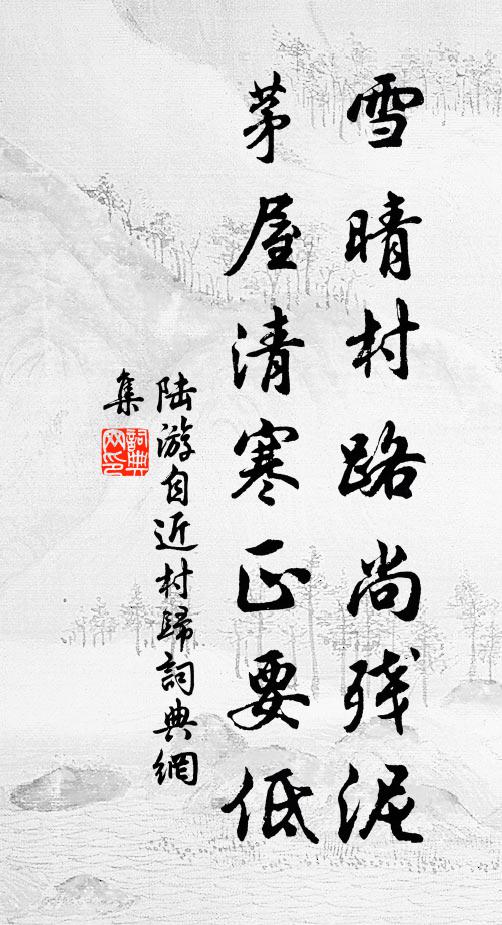 雪晴村路尚残泥
茅屋清寒正要低
陆游自近村歸詞典網
集
詞典
网印